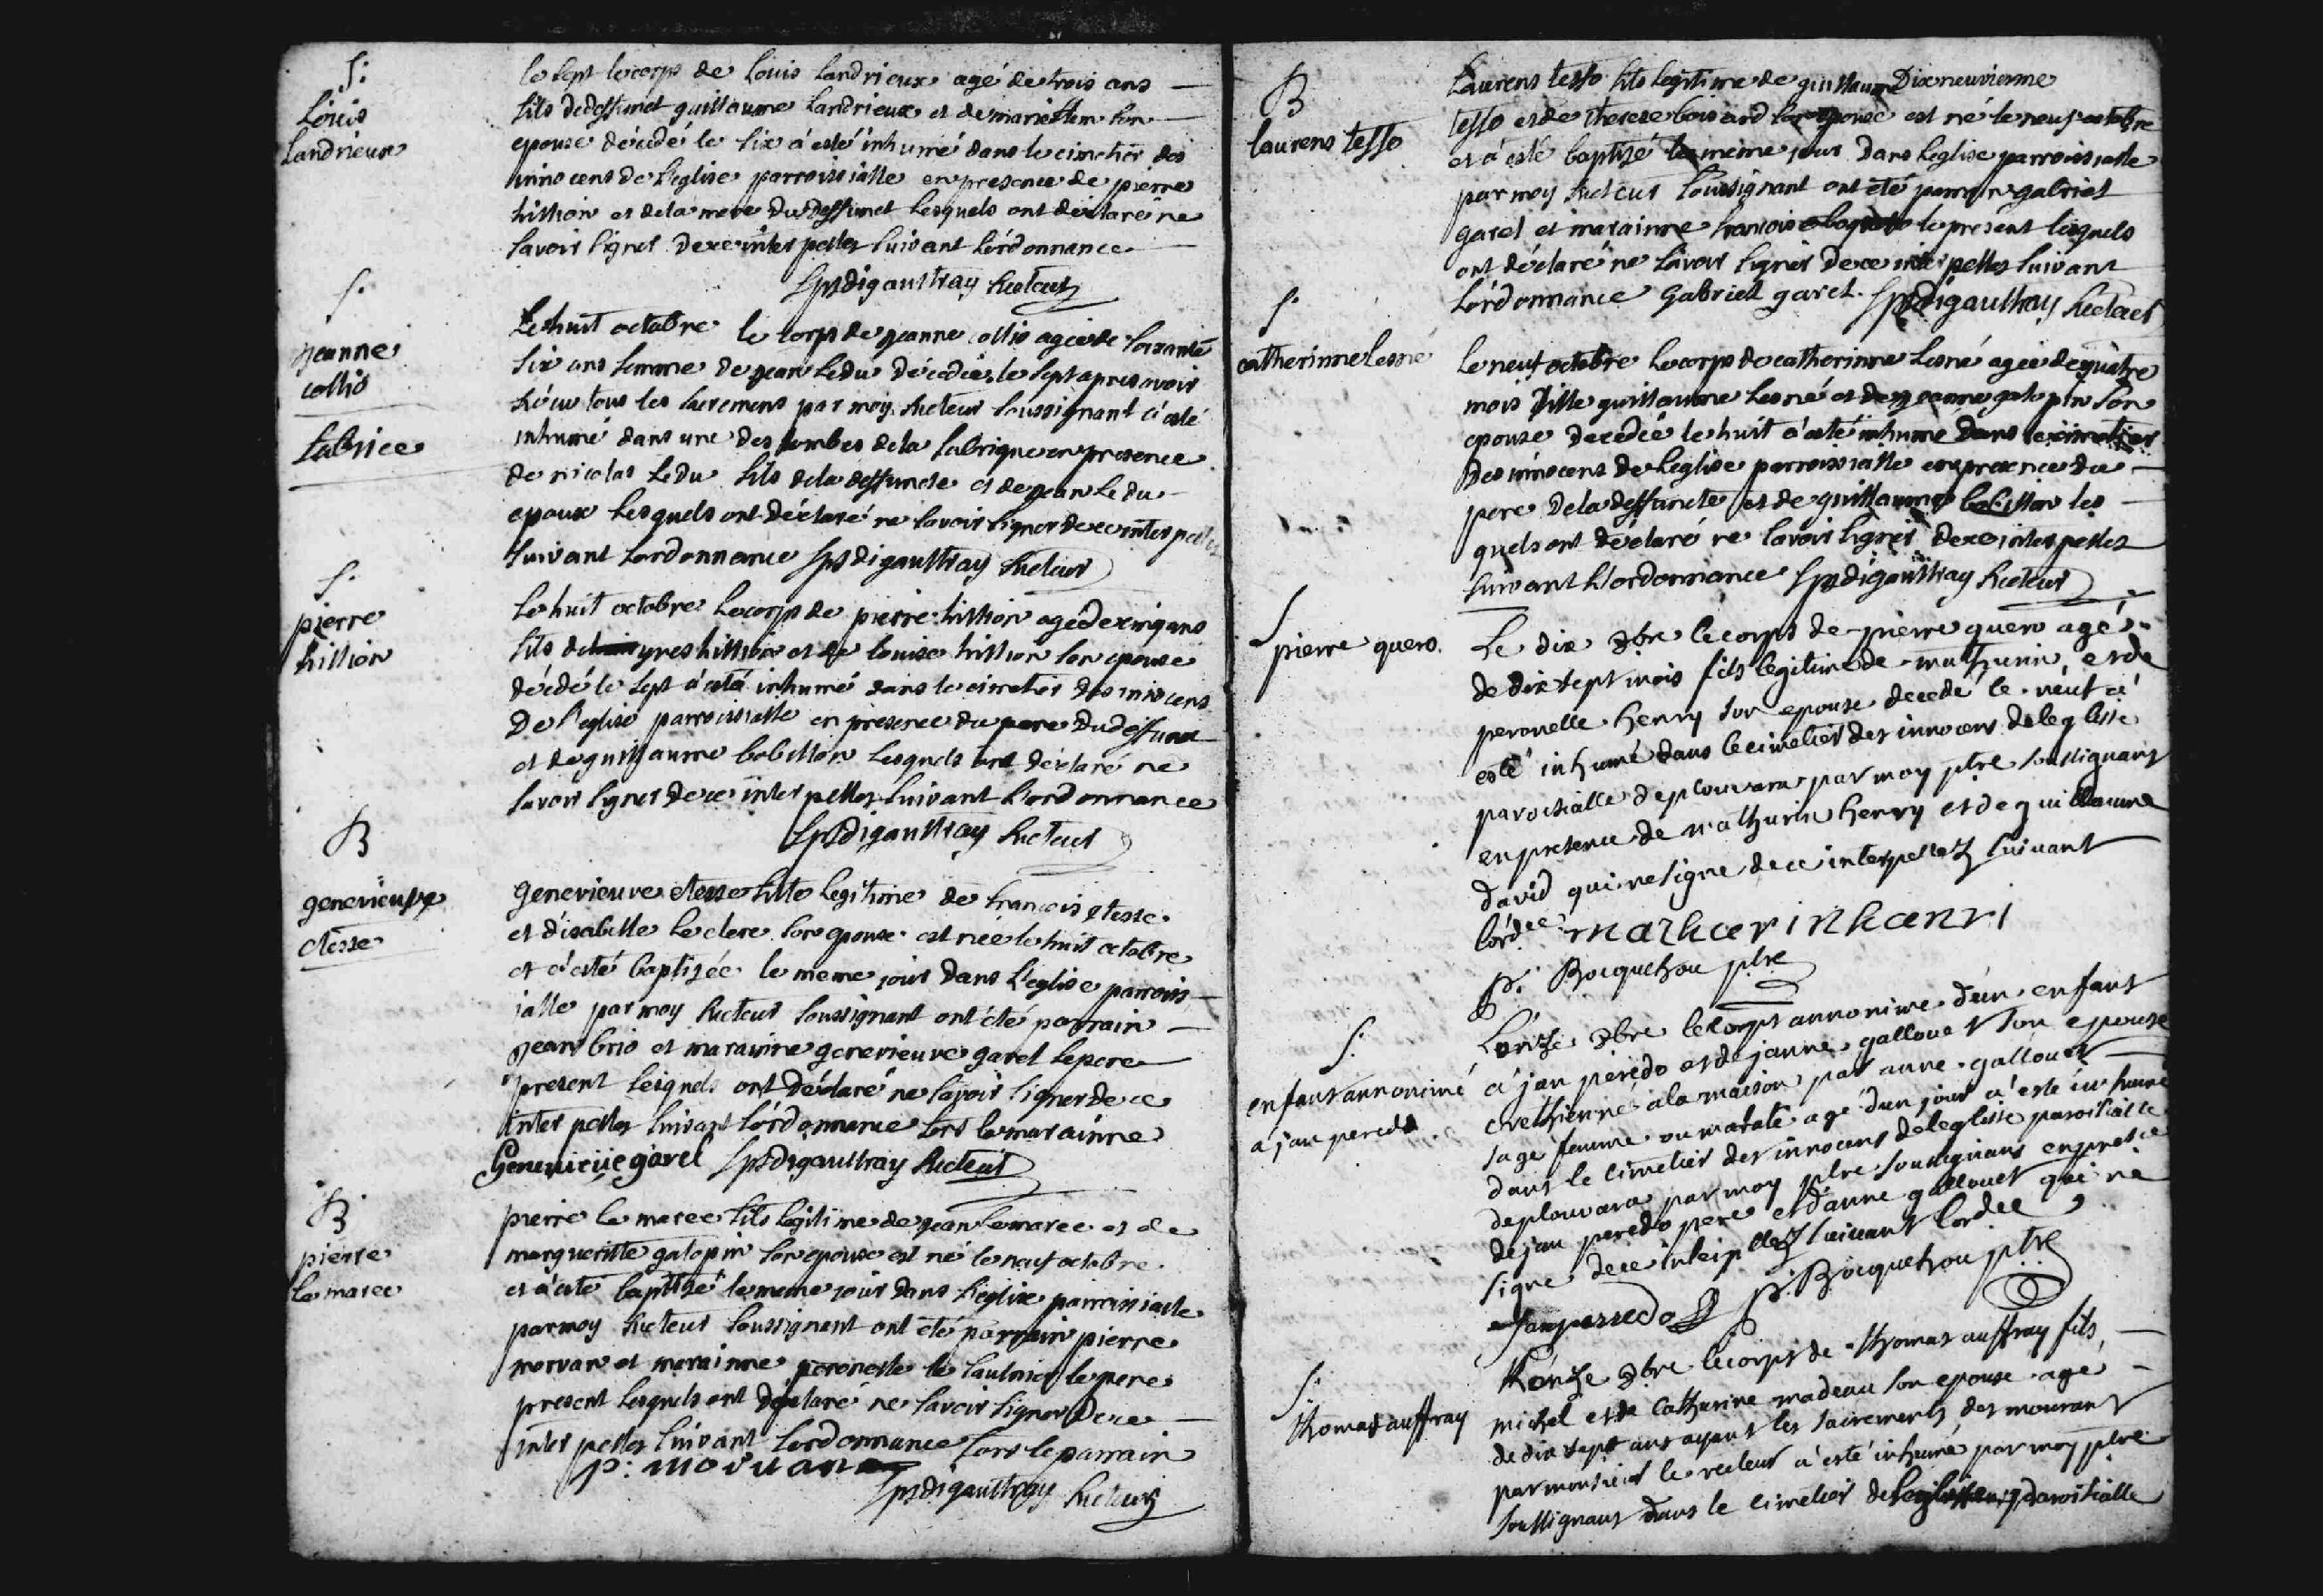 S:
Louis
Landrieux
le sept le corps de Louis Landrieux agé de trois ans
fils de deffunct guillaume Landrieux et de marie hem son
epouse décédé le six à esté inhumé dans le cimetier des
innocens de l'eglise parroissialle en presence de pierre
hillion et de la mere du deffunct lesquels ont déclaré ne
savoir signer de ce interpellez suivant l'ordonnance
Sps digaultray Recteur
S.
jeanne
collio
fabrice
Le huit octobre le corps de jeanne collio agée de soixante
six ans femme de jean Ledu décédée le sept apres avoir
réçu tous les sacremens par moy Recteur soussignant à esté
inhumé dans une des tombes de la fabrique en presence
de nicolas Ledu fils de la deffuncte et de jean Ledu
epoux lesquels ont déclaré ne savoir signer de ce interpellez
suivant lordonnance Sps digaultray Recteur
S.
pierre
hillion
Le huit octobre le corps de pierre hillion agé de cinq ans
fils de yves hillion et de louise hillion son epouse
décédé le sept à esté inhumé dans le cimetier des innocens
De l'eglise parroissialle en presence du pere du deffunct
et de guillaume bobillon lesquels ont déclaré ne
savoir signer de ce interpellez suivant l'ordonnance
Sps digaultray Recteur
B
genevieuve
etesse
Genevieuve etesse fille legitime de francois etesse
et d'isabelle Leclerc son epouse est née le huit octobre
et à esté baptisée le meme jour dans l'eglise parroiss
ialle par moy Recteur soussignant ont été parrain
jean brio et maraine genevieuve garel le pere
present lesquels ont déclaré ne savoir signer de ce
interpellez suivant l'ordonnance fors la marainne
Genevieuve garel Sps digaultray Recteur
B
pierre
le marec
pierre le marec fils legitime de jean le marec et de
margueritte galopin son epouse est né le neuf octobre
et à esté baptisé le meme jour dans l'eglise parroissialle
par moy Recteur soussignant ont été parrain pierre
morvan et marainne peronelle le saulnier le pere
present lesquels ont déclaré ne savoir signer De ce
interpellez suivant lordonnance fors le parrain
p: morvan
Sps digaultray Recteur
B
laurens tesso
Laurens tesso fils legitime de guillaume Dixneuvieme
tesso et de therese boisard son epouse est né le neuf octobre
et à esté baptisé le meme jour Dans l'eglise parroissialle
par moy Recteur soussignant ont été parrain gabriel
garel et marainne francoise le present lesquels
ont déclaré ne savoir signer de ce interpellez suivant
l'ordonnance Gabriel garel. Sps digaultray Recteur
S.
catherinne Lesné
Le neuf octobre le corps de catherinne Lesné agée de quatre
mois fille guillaume Lesné et de jeanne galopin son
epouse decedée le huit à esté inhumé dans le cimetier
des innocens de l'eglise parroissialle en presence du
pere de la deffuncte et de guillaume bobillon les
quels ont déclaré ne savoir signer de ce interpellez
suivant l'ordonnance Sps digaultray Recteur
S
pierre quero.
Le dix 8bre le corps de pierre quero agé
de dix sept mois fils legitime de mathurin, et de
peronelle henry son epouse decedé le neuf a
esté inhumé dans le cimetier des innocens de leglisse
paroissialle de plouvara par moy ptre soussignant
en presence de mathurin henry et de guillaume
david qui ne signe de ce interpellez suivant
lordce mathurin henri
p. Bocquehou ptre
S.
enfant annonimé
a jan peredo
L'onze 8bre le corps annonime d'un enfant
a jan peredo et de janne gallouet son epouse
crethienné a la maison par anne gallouet
sage femme ou matale agé d'un jour a esté inhumé
dans le cimetier des innocens de leglisse paroissialle
de plouvara par moy ptre soussignant en presce
de jan peredo pere et d'anne gallouet qui ne
signe de ce interpellez suivant lordce
Jan perredo p. Bocquehou ptre
S.
thomas auffray
L'onze 8bre le corps de thomas auffray fils
michel et de Catherine madeau son epouse agé
de dix sept ans ayant les sacrements des mourant
par monsieur le recteur a esté inhumé par moy ptre
soussignant dans le cimetier de paroissialle